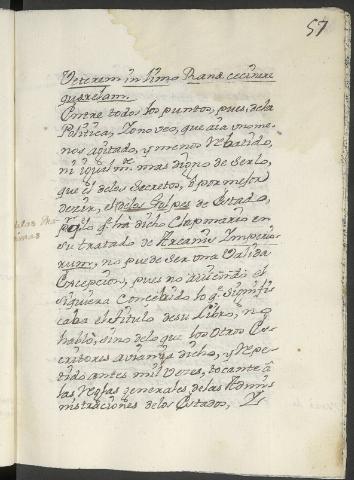 57
Veterem in limo Ranæ cecinere
querelam.
Entre todos los puntos, pues, dela
Politica, Yo no veo, que aia uno me-
nos agitado, y menos rebatido,
ni igualm.te mas digno de serlo,
que el delos Secretos, ò por mejor
dezir, el delos Golpes de Estado,
p.r q.e lo q.e hà dicho Clapmario en
su tratado de Arcanis Imperio-
rum, no puede ser una valida
Excepcion, pues no aviendo el
siquiera concebido lo q.e signifi-
caba el titulo de su Libro, no
habló, sino delo que los otros Es-
critores avian yà dicho, y repe-
tido antes mil veces, tocante à
las Reglas generales delas Admi-
nistraciones delos Estados, Y